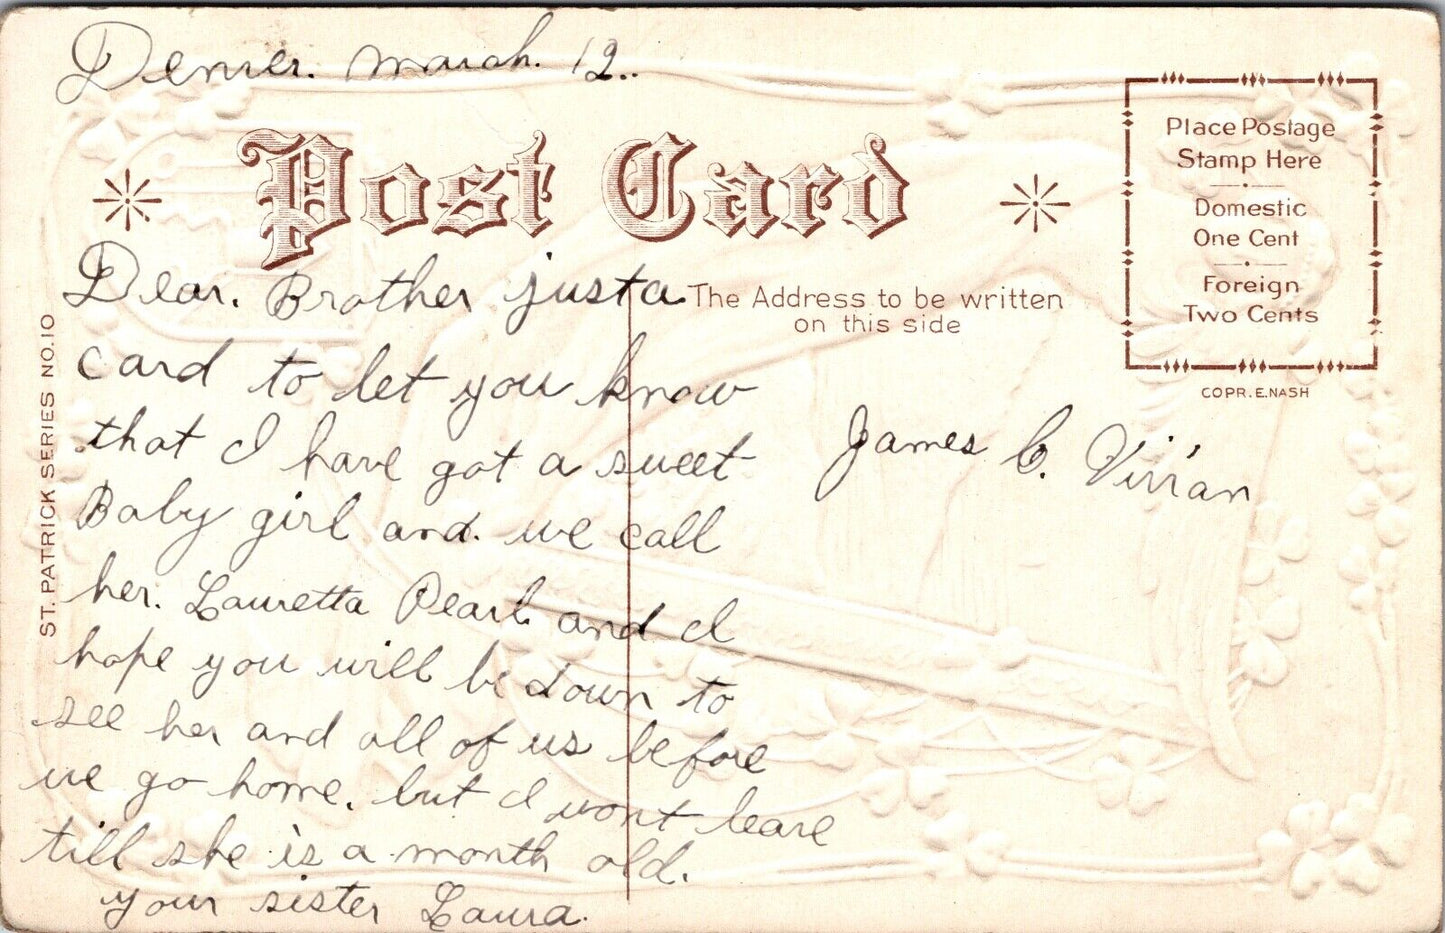 Denver. March. 12..
Post Card
Place Postage
Stamp Here
Domestic
One Cent
Foreign
Two Cents
COPR. E. NASH
ST. PATRICK SERIES NO. 10
The Address to be written
on this side
Dear. Brother just a
card to let you know
that I have got a sweet
Baby girl and. we call
her. Lauretta Pearl. and I
hope you will be down to
see her and all of us before
we go home. but I wont leave
till she is a month old.
your sister Laura.
James C. Vivian